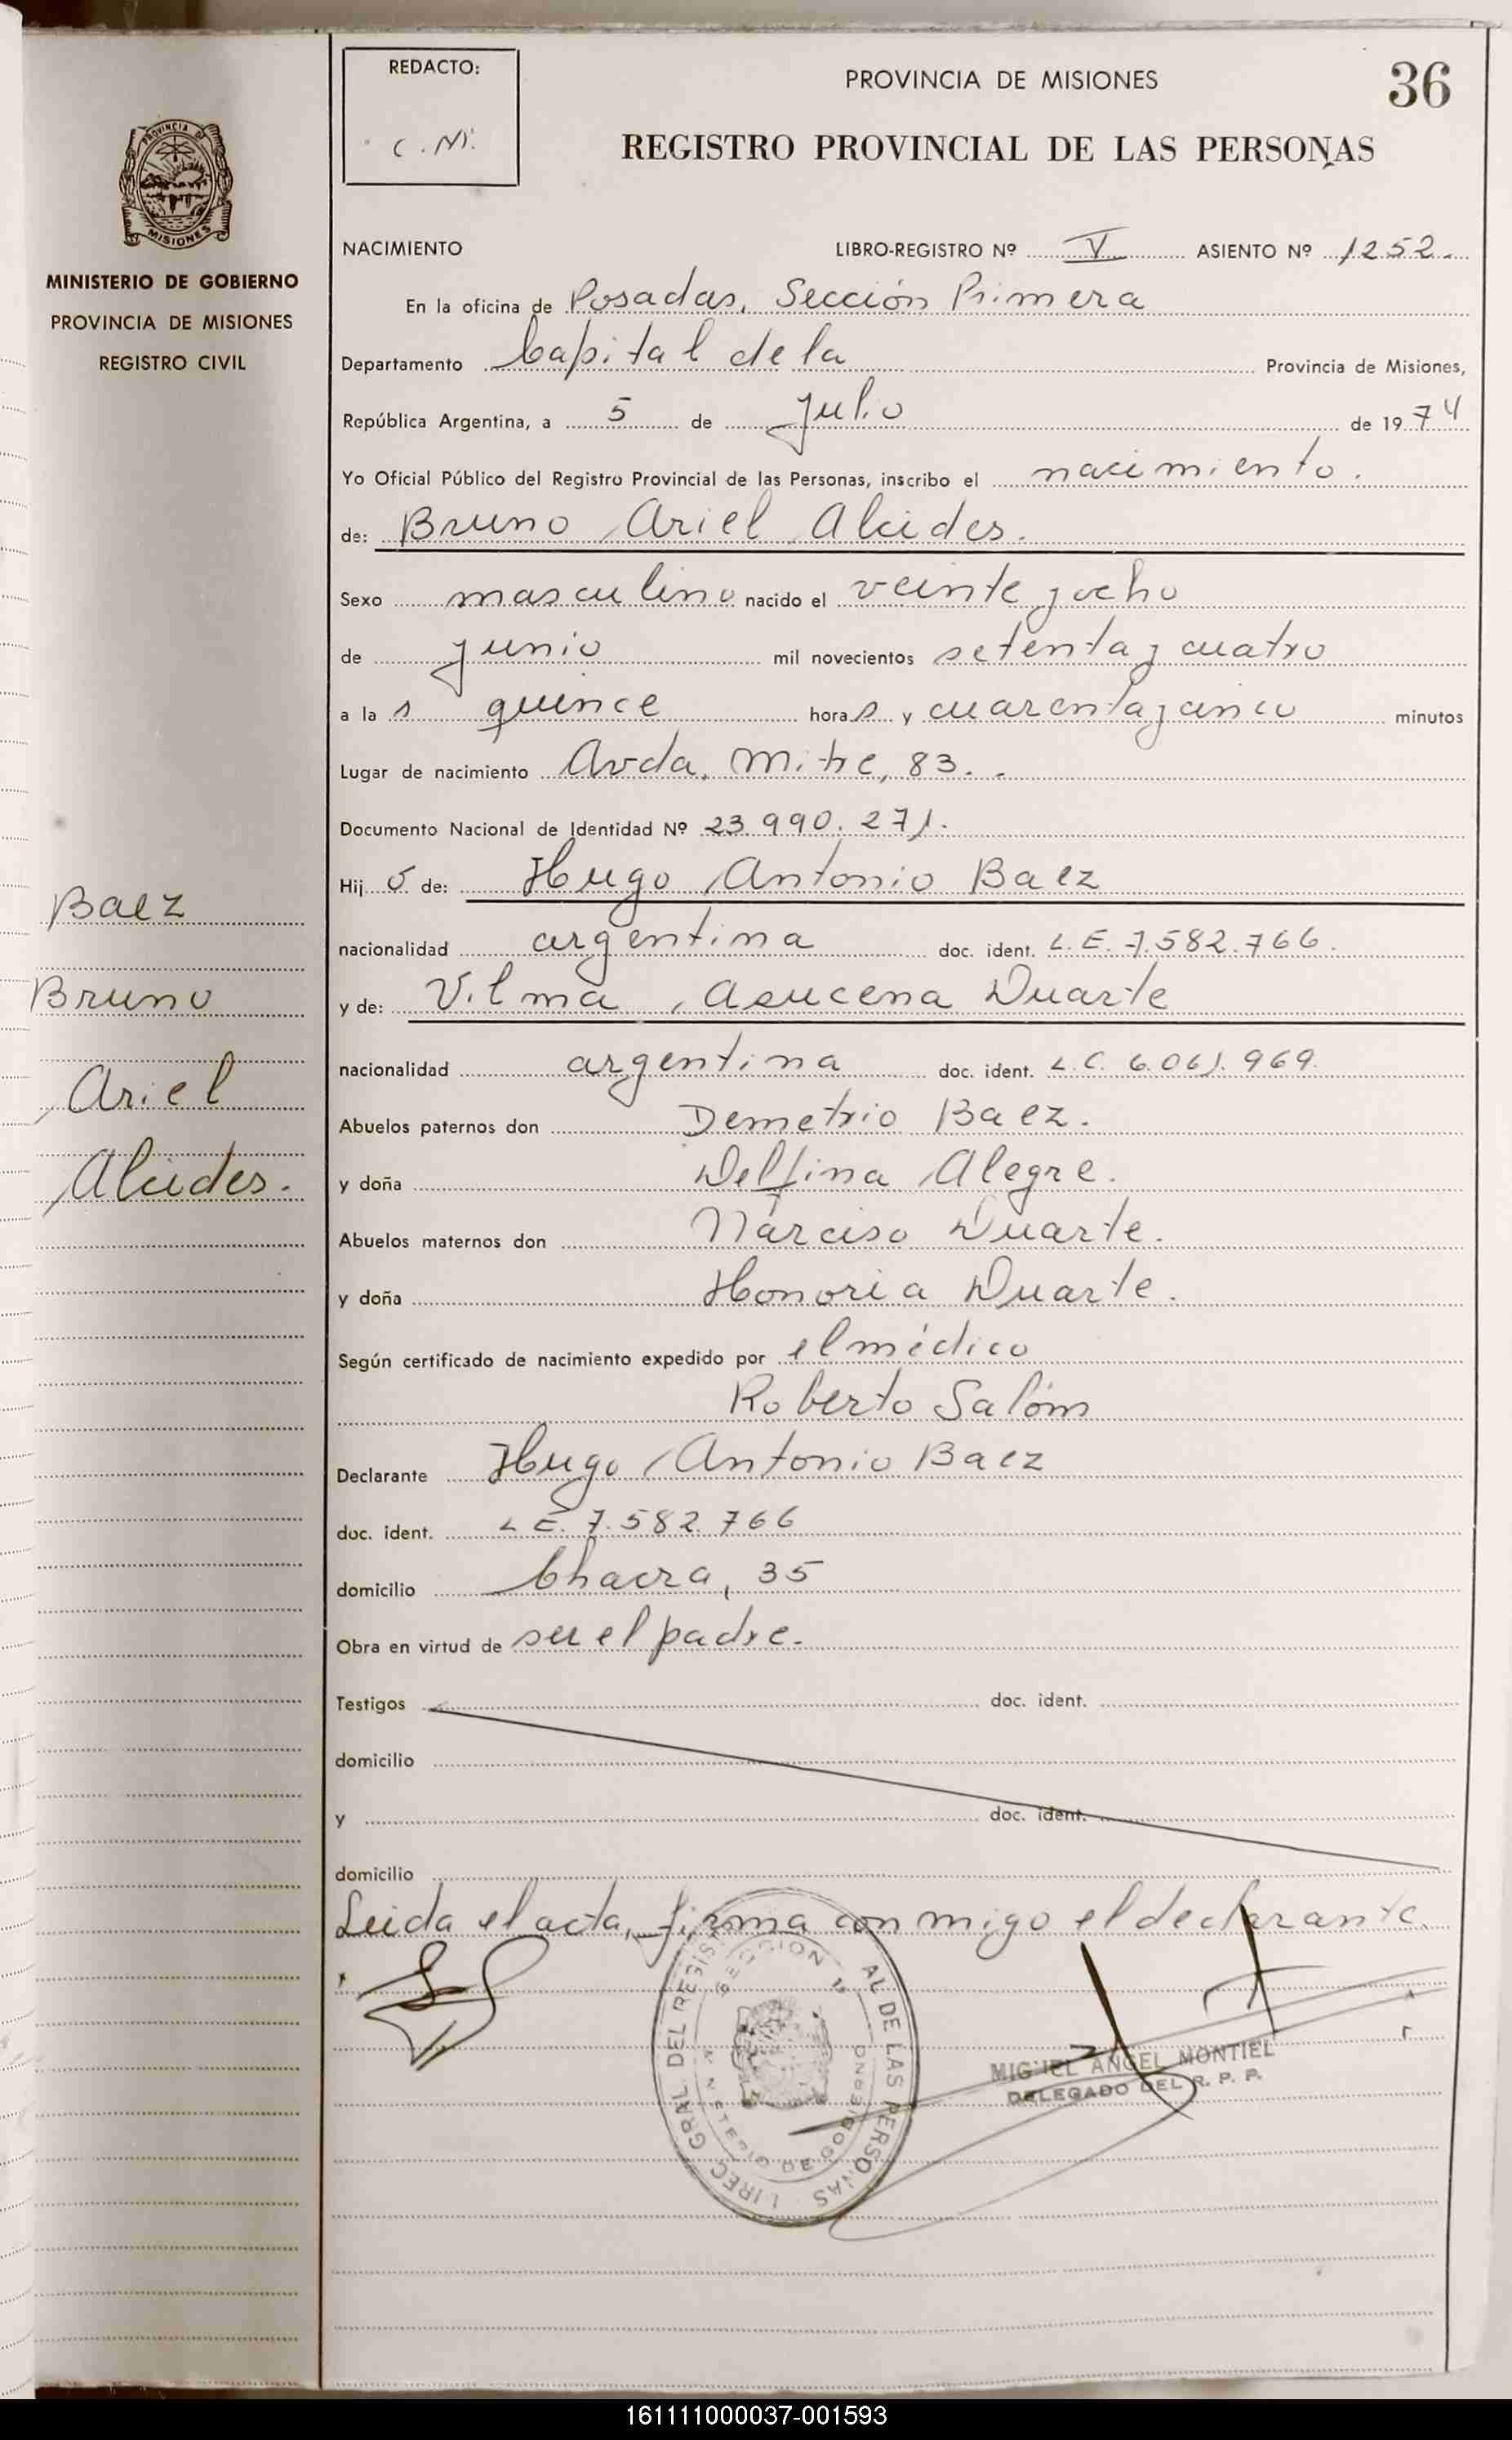 REDACTO:
C. M.
PROVINCIA DE MISIONES
36
REGISTRO PROVINCIAL DE LAS PERSONAS
PROVINCIA DE MISIONES
MINISTERIO DE GOBIERNO
PROVINCIA DE MISIONES
REGISTRO CIVIL
NACIMIENTO LIBRO-REGISTRO Nº V ASIENTO Nº 1252.
En la oficina de Posadas, Sección Primera
Departamento Capital de la Provincia de Misiones,
República Argentina, a 5 de Julio de 1974
Yo Oficial Público del Registro Provincial de las Personas, inscribo el nacimiento.
de: Bruno Ariel Alcides.
Sexo masculino nacido el veinte y ocho
de junio mil novecientos setenta y cuatro
a las quince horas y cuarenta y cinco minutos
Lugar de nacimiento Avda. Mitre, 83.
Documento Nacional de Identidad Nº 23.990.271.
Hijo de: Hugo Antonio Baez
nacionalidad argentina doc. ident. L.E. 7.582.766.
y de: Vilma Asucena Duarte
nacionalidad argentina doc. ident. L.C. 6.061.969.
Abuelos paternos don Demetrio Baez.
y doña Delfina Alegre.
Abuelos maternos don Narciso Duarte.
y doña Honoria Duarte.
Según certificado de nacimiento expedido por el médico
Roberto Salóm
Declarante Hugo Antonio Baez
doc. ident. L.E. 7.582.766
domicilio Chacra, 35
Obra en virtud de ser el padre.
Testigos doc. ident.
domicilio
y doc. ident.
domicilio
Leida el acta, firma conmigo el declarante.
Baez
Bruno
Ariel
Alcides.
MIGUEL ANGEL MONTIEL
DELEGADO DEL R. P. P.
SECCION 1ª
MINISTERIO DE GOBIERNO
161111000037-001593